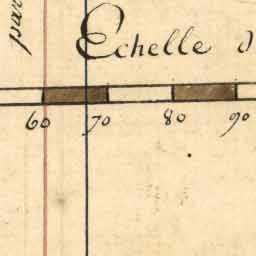 par
Echelle d
60 70 80 90